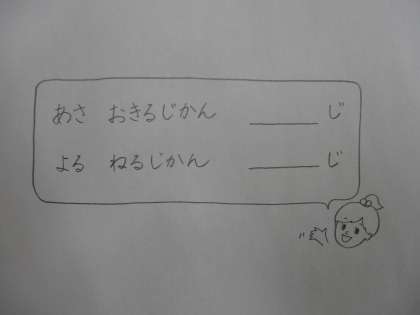 あさ おきるじかん ______じ
よる ねるじかん ______じ